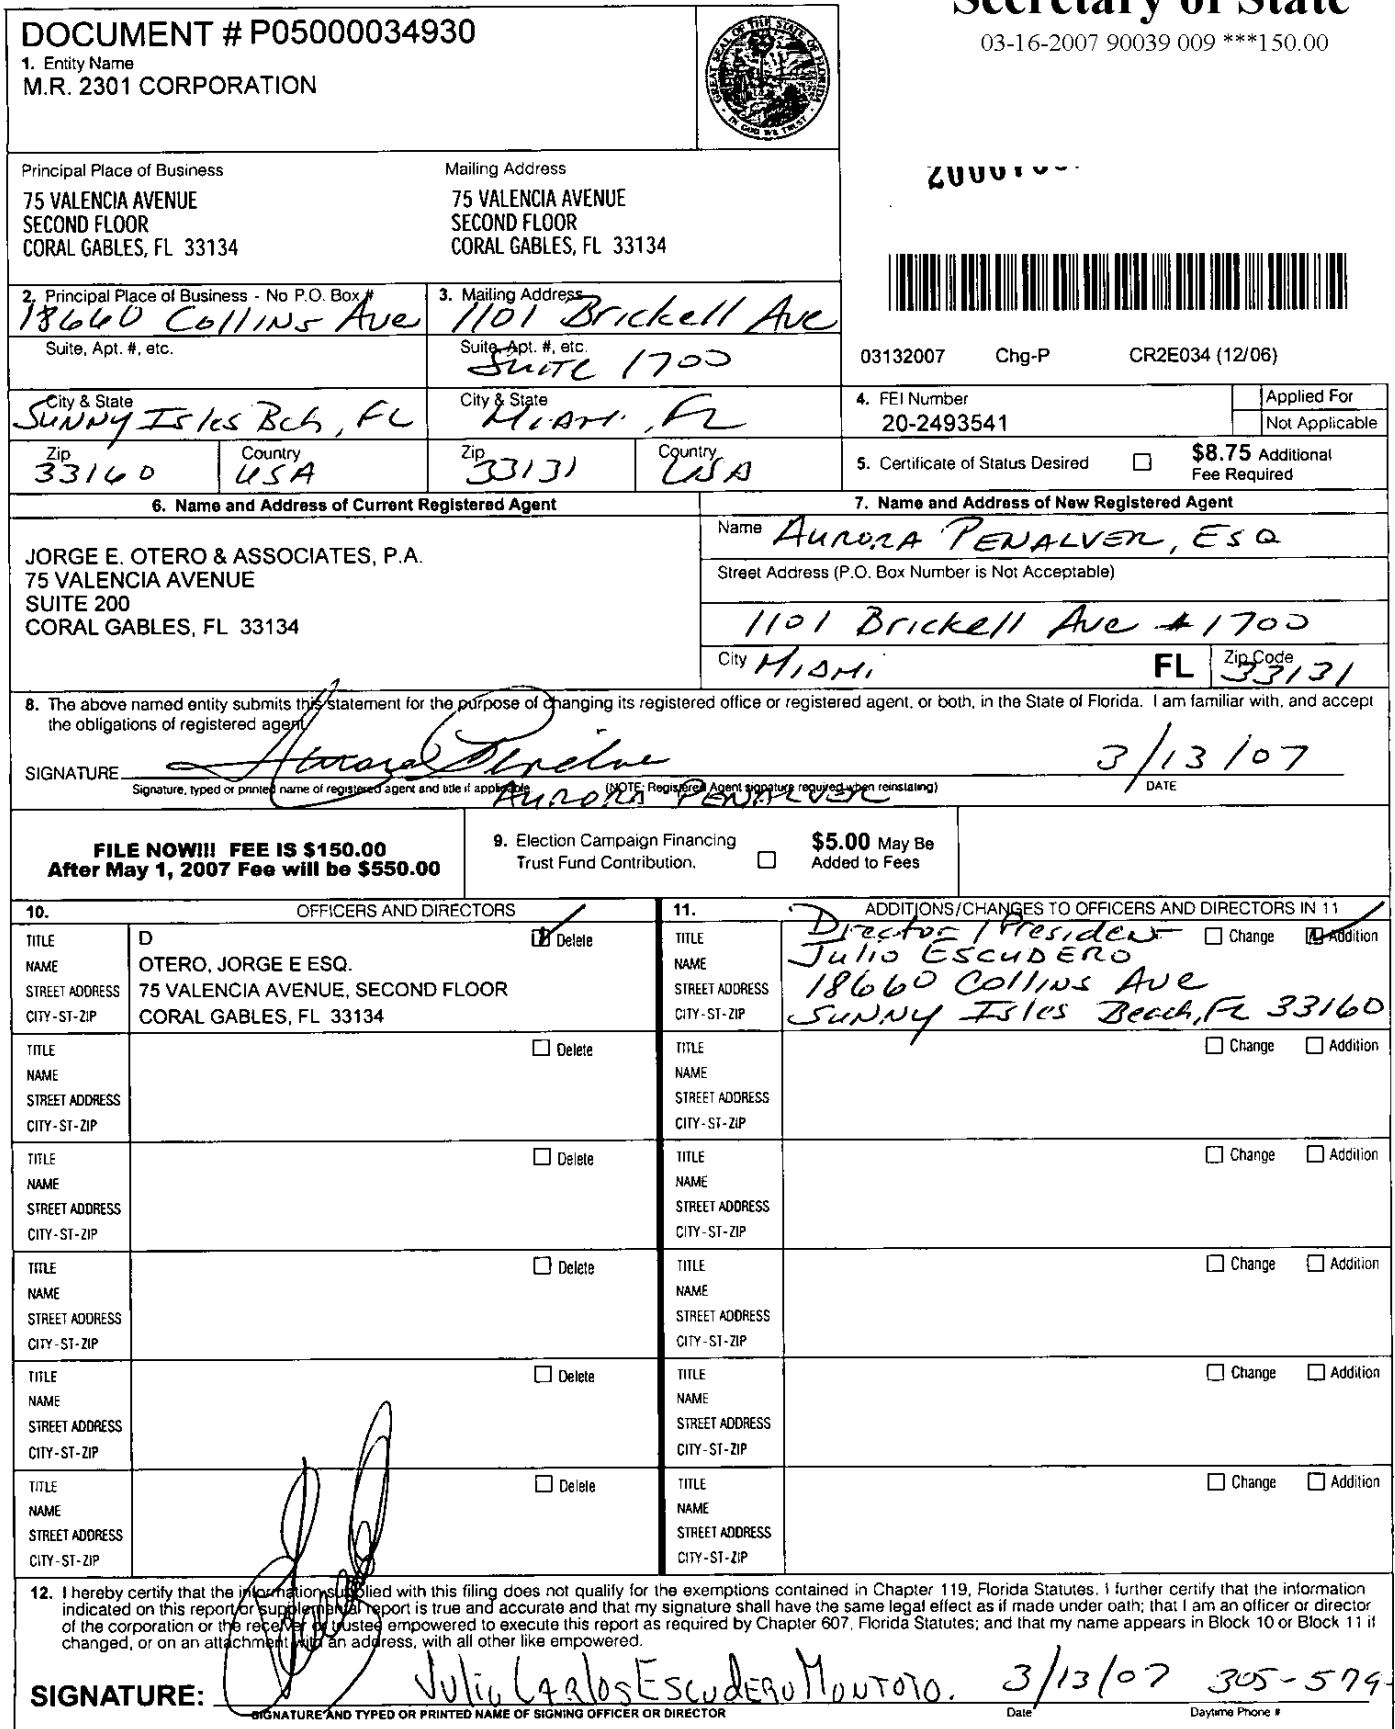 Secretary of State
03-16-2007 90039 009 ***150.00
DOCUMENT # P05000034930
1. Entity Name
M.R. 2301 CORPORATION
GREAT SEAL OF THE STATE OF FLORIDA
IN GOD WE TRUST
Principal Place of Business
75 VALENCIA AVENUE
SECOND FLOOR
CORAL GABLES, FL 33134
Mailing Address
75 VALENCIA AVENUE
SECOND FLOOR
CORAL GABLES, FL 33134
2. Principal Place of Business - No P.O. Box #
18660 Collins Ave
Suite, Apt. #, etc.
City & State
Sunny Isles Bch, FL
Zip
33160
Country
USA
3. Mailing Address
1101 Brickell Ave
Suite, Apt. #, etc.
Suite 1700
City & State
Miami, FL
Zip
33131
Country
USA
03132007 Chg-P CR2E034 (12/06)
4. FEI Number
20-2493541
Applied For
Not Applicable
5. Certificate of Status Desired
$8.75 Additional
Fee Required
6. Name and Address of Current Registered Agent
JORGE E. OTERO & ASSOCIATES, P.A.
75 VALENCIA AVENUE
SUITE 200
CORAL GABLES, FL 33134
7. Name and Address of New Registered Agent
Name Aurora Penalver, Esq
Street Address (P.O. Box Number is Not Acceptable)
1101 Brickell Ave #1700
City Miami FL Zip Code 33131
8. The above named entity submits this statement for the purpose of changing its registered office or registered agent, or both, in the State of Florida. I am familiar with, and accept
the obligations of registered agent.
SIGNATURE Aurora Penalver 3/13/07
Signature, typed or printed name of registered agent and title if applicable (NOTE: Registered Agent signature required when reinstating) DATE
Aurora Penalver
FILE NOW!!! FEE IS $150.00
After May 1, 2007 Fee will be $550.00
9. Election Campaign Financing
Trust Fund Contribution.
$5.00 May Be
Added to Fees
10. OFFICERS AND DIRECTORS
TITLE D Delete
NAME OTERO, JORGE E ESQ.
STREET ADDRESS 75 VALENCIA AVENUE, SECOND FLOOR
CITY-ST-ZIP CORAL GABLES, FL 33134
TITLE Delete
NAME
STREET ADDRESS
CITY-ST-ZIP
TITLE Delete
NAME
STREET ADDRESS
CITY-ST-ZIP
TITLE Delete
NAME
STREET ADDRESS
CITY-ST-ZIP
TITLE Delete
NAME
STREET ADDRESS
CITY-ST-ZIP
TITLE Delete
NAME
STREET ADDRESS
CITY-ST-ZIP
11. ADDITIONS/CHANGES TO OFFICERS AND DIRECTORS IN 11
TITLE Director / President Change Addition
NAME Julio Escudero
STREET ADDRESS 18660 Collins Ave
CITY-ST-ZIP Sunny Isles Beach, FL 33160
TITLE Change Addition
NAME
STREET ADDRESS
CITY-ST-ZIP
TITLE Change Addition
NAME
STREET ADDRESS
CITY-ST-ZIP
TITLE Change Addition
NAME
STREET ADDRESS
CITY-ST-ZIP
TITLE Change Addition
NAME
STREET ADDRESS
CITY-ST-ZIP
TITLE Change Addition
NAME
STREET ADDRESS
CITY-ST-ZIP
12. I hereby certify that the information supplied with this filing does not qualify for the exemptions contained in Chapter 119, Florida Statutes. I further certify that the information
indicated on this report or supplemental report is true and accurate and that my signature shall have the same legal effect as if made under oath; that I am an officer or director
of the corporation or the receiver or trustee empowered to execute this report as required by Chapter 607, Florida Statutes; and that my name appears in Block 10 or Block 11 if
changed, or on an attachment with an address, with all other like empowered.
SIGNATURE: Julio Carlos Escudero Montoto. 3/13/07 305-579-
SIGNATURE AND TYPED OR PRINTED NAME OF SIGNING OFFICER OR DIRECTOR Date Daytime Phone #